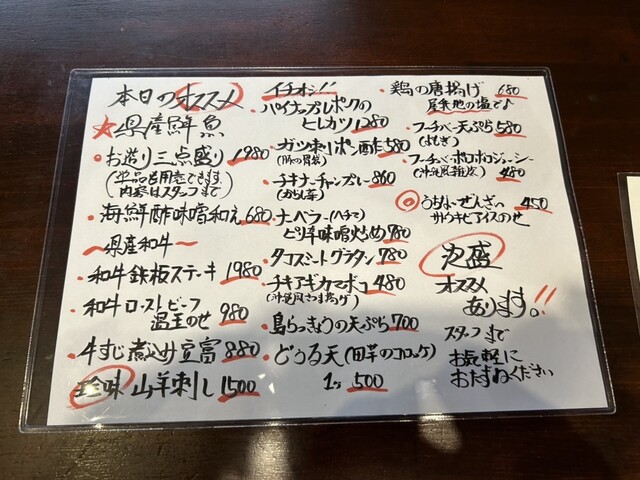 本日のオススメ
★県産鮮魚
・お造り三点盛り 1980
(単品も用意できます。
内容はスタッフまで)
・海鮮酢味噌和え 680
〜県産和牛〜
・和牛鉄板ステーキ 1980
・和牛ローストビーフ
温玉のせ 980
・牛すじ煮込み豆富 880
珍味 山羊刺し 1500
イチオシ!!
・パイナップルポークの
ヒレカツ 1280
・ガツ刺しポン酢 580
(豚の胃袋)
・チキナーチャンプレー 860
(からし菜)
・ナーベラー(ヘチマ)
ピリ辛味噌炒め 780
・タコスミートグラタン 780
・チキアギカマボコ 480
(沖縄風さつま揚げ)
・島らっきょうの天ぷら 700
・どぅる天(田芋のコロッケ)
1ヶ 500
・鶏の唐揚げ 680
屋我地の塩で♪
・フーチバー天ぷら 580
(よもぎ)
・フーチバーボロボロジューシー
(沖縄風雑炊) 480
◎うちなーぜんざい 450
サトウキビアイスのせ
泡盛
オススメ
あります。!!
スタッフまで
お気軽に
おたずねください